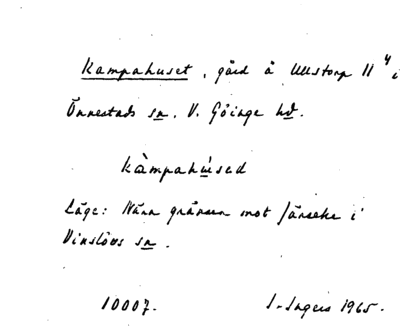 Kampahuset, gård å Ullstorp 11⁴ i
Önnestads sn. V. Göinge hd.
kàmpahúsed
Läge: Nära gränsen mot Järeke i
Vinslövs sn.
10007. I. Ingers 1965.